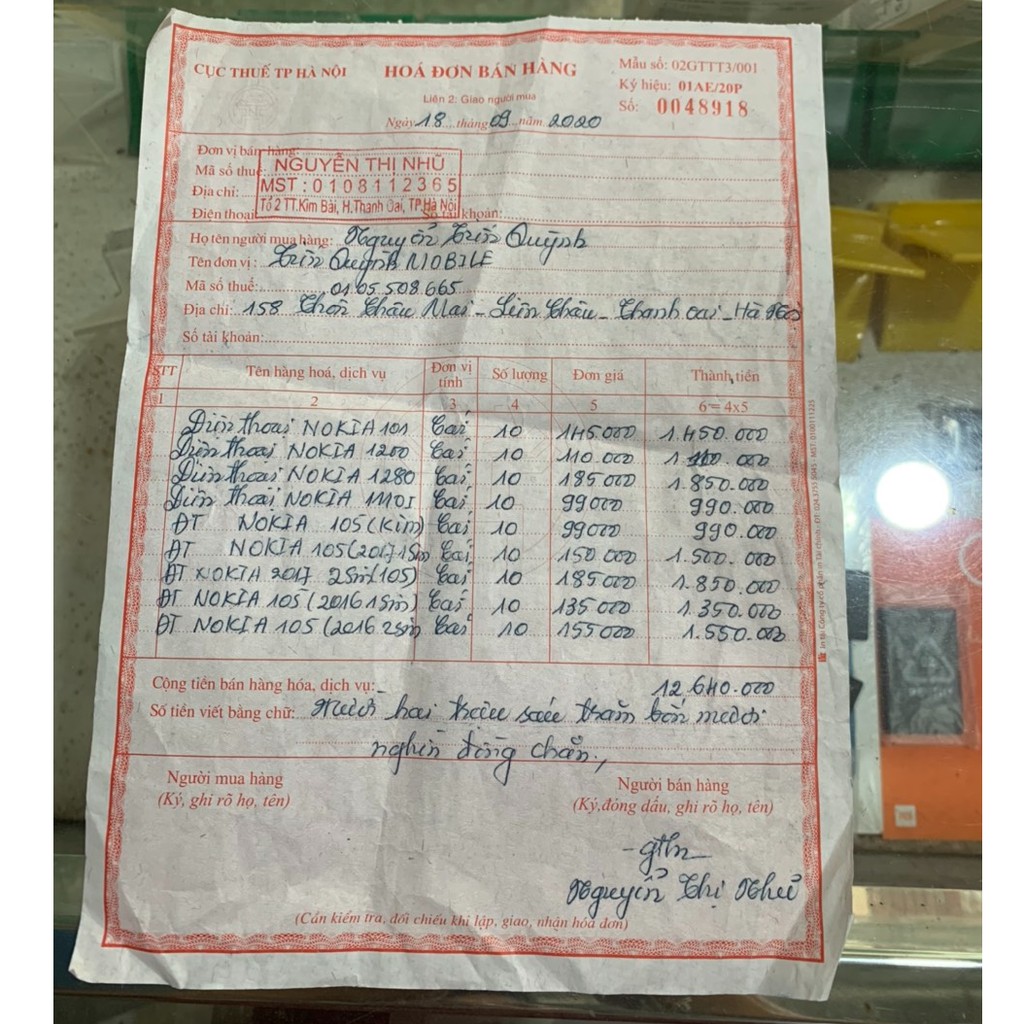 CỤC THUẾ TP HÀ NỘI
HOÁ ĐƠN BÁN HÀNG
Liên 2: Giao người mua
Ngày 18 tháng 09 năm 2020
Mẫu số: 02GTTT3/001
Ký hiệu: 01AE/20P
Số: 0048918
Đơn vị bán hàng:
NGUYỄN THỊ NHŨ
Mã số thuế:
MST: 0108112365
Địa chỉ:
Tổ 2 TT.Kim Bài, H.Thanh Oai, TP.Hà Nội
Điện thoại: Số tài khoản:
Họ tên người mua hàng: Nguyễn Quỳnh
Tên đơn vị: Quỳnh MOBILE
Mã số thuế: 0105508665
Địa chỉ: 158 Thôn Châu Mai - Liên Châu - Thanh oai - Hà Nội
Số tài khoản:
STT Tên hàng hoá, dịch vụ Đơn vị tính Số lượng Đơn giá Thành tiền
1 2 3 4 5 6 = 4x5
Điện thoại NOKIA 101 Cái 10 145.000 1.450.000
Điện thoại NOKIA 1200 Cái 10 110.000 1.100.000
Điện thoại NOKIA 1280 Cái 10 185000 1.850.000
Điện thoại NOKIA 1110I Cái 10 99000 990.000
ĐT NOKIA 105 (Kim) Cái 10 99000 990.000
ĐT NOKIA 105 (2017 1Sim Cái 10 150000 1.500.000
ĐT NOKIA 2017 2Sim (105) Cái 10 185000 1.850.000
ĐT NOKIA 105 (2016 1Sim) Cái 10 135000 1.350.000
ĐT NOKIA 105 (2016 2sim Cái 10 155000 1.550.000
Cộng tiền bán hàng hóa, dịch vụ: 12.640.000
Số tiền viết bằng chữ: Mười hai triệu sáu trăm bốn mươi
nghìn đồng chẵn
Người mua hàng
(Ký, ghi rõ họ, tên)
Người bán hàng
(Ký,đóng dấu, ghi rõ họ, tên)
Nguyễn Thị Nhũ
(Cần kiểm tra, đối chiếu khi lập, giao, nhận hóa đơn)